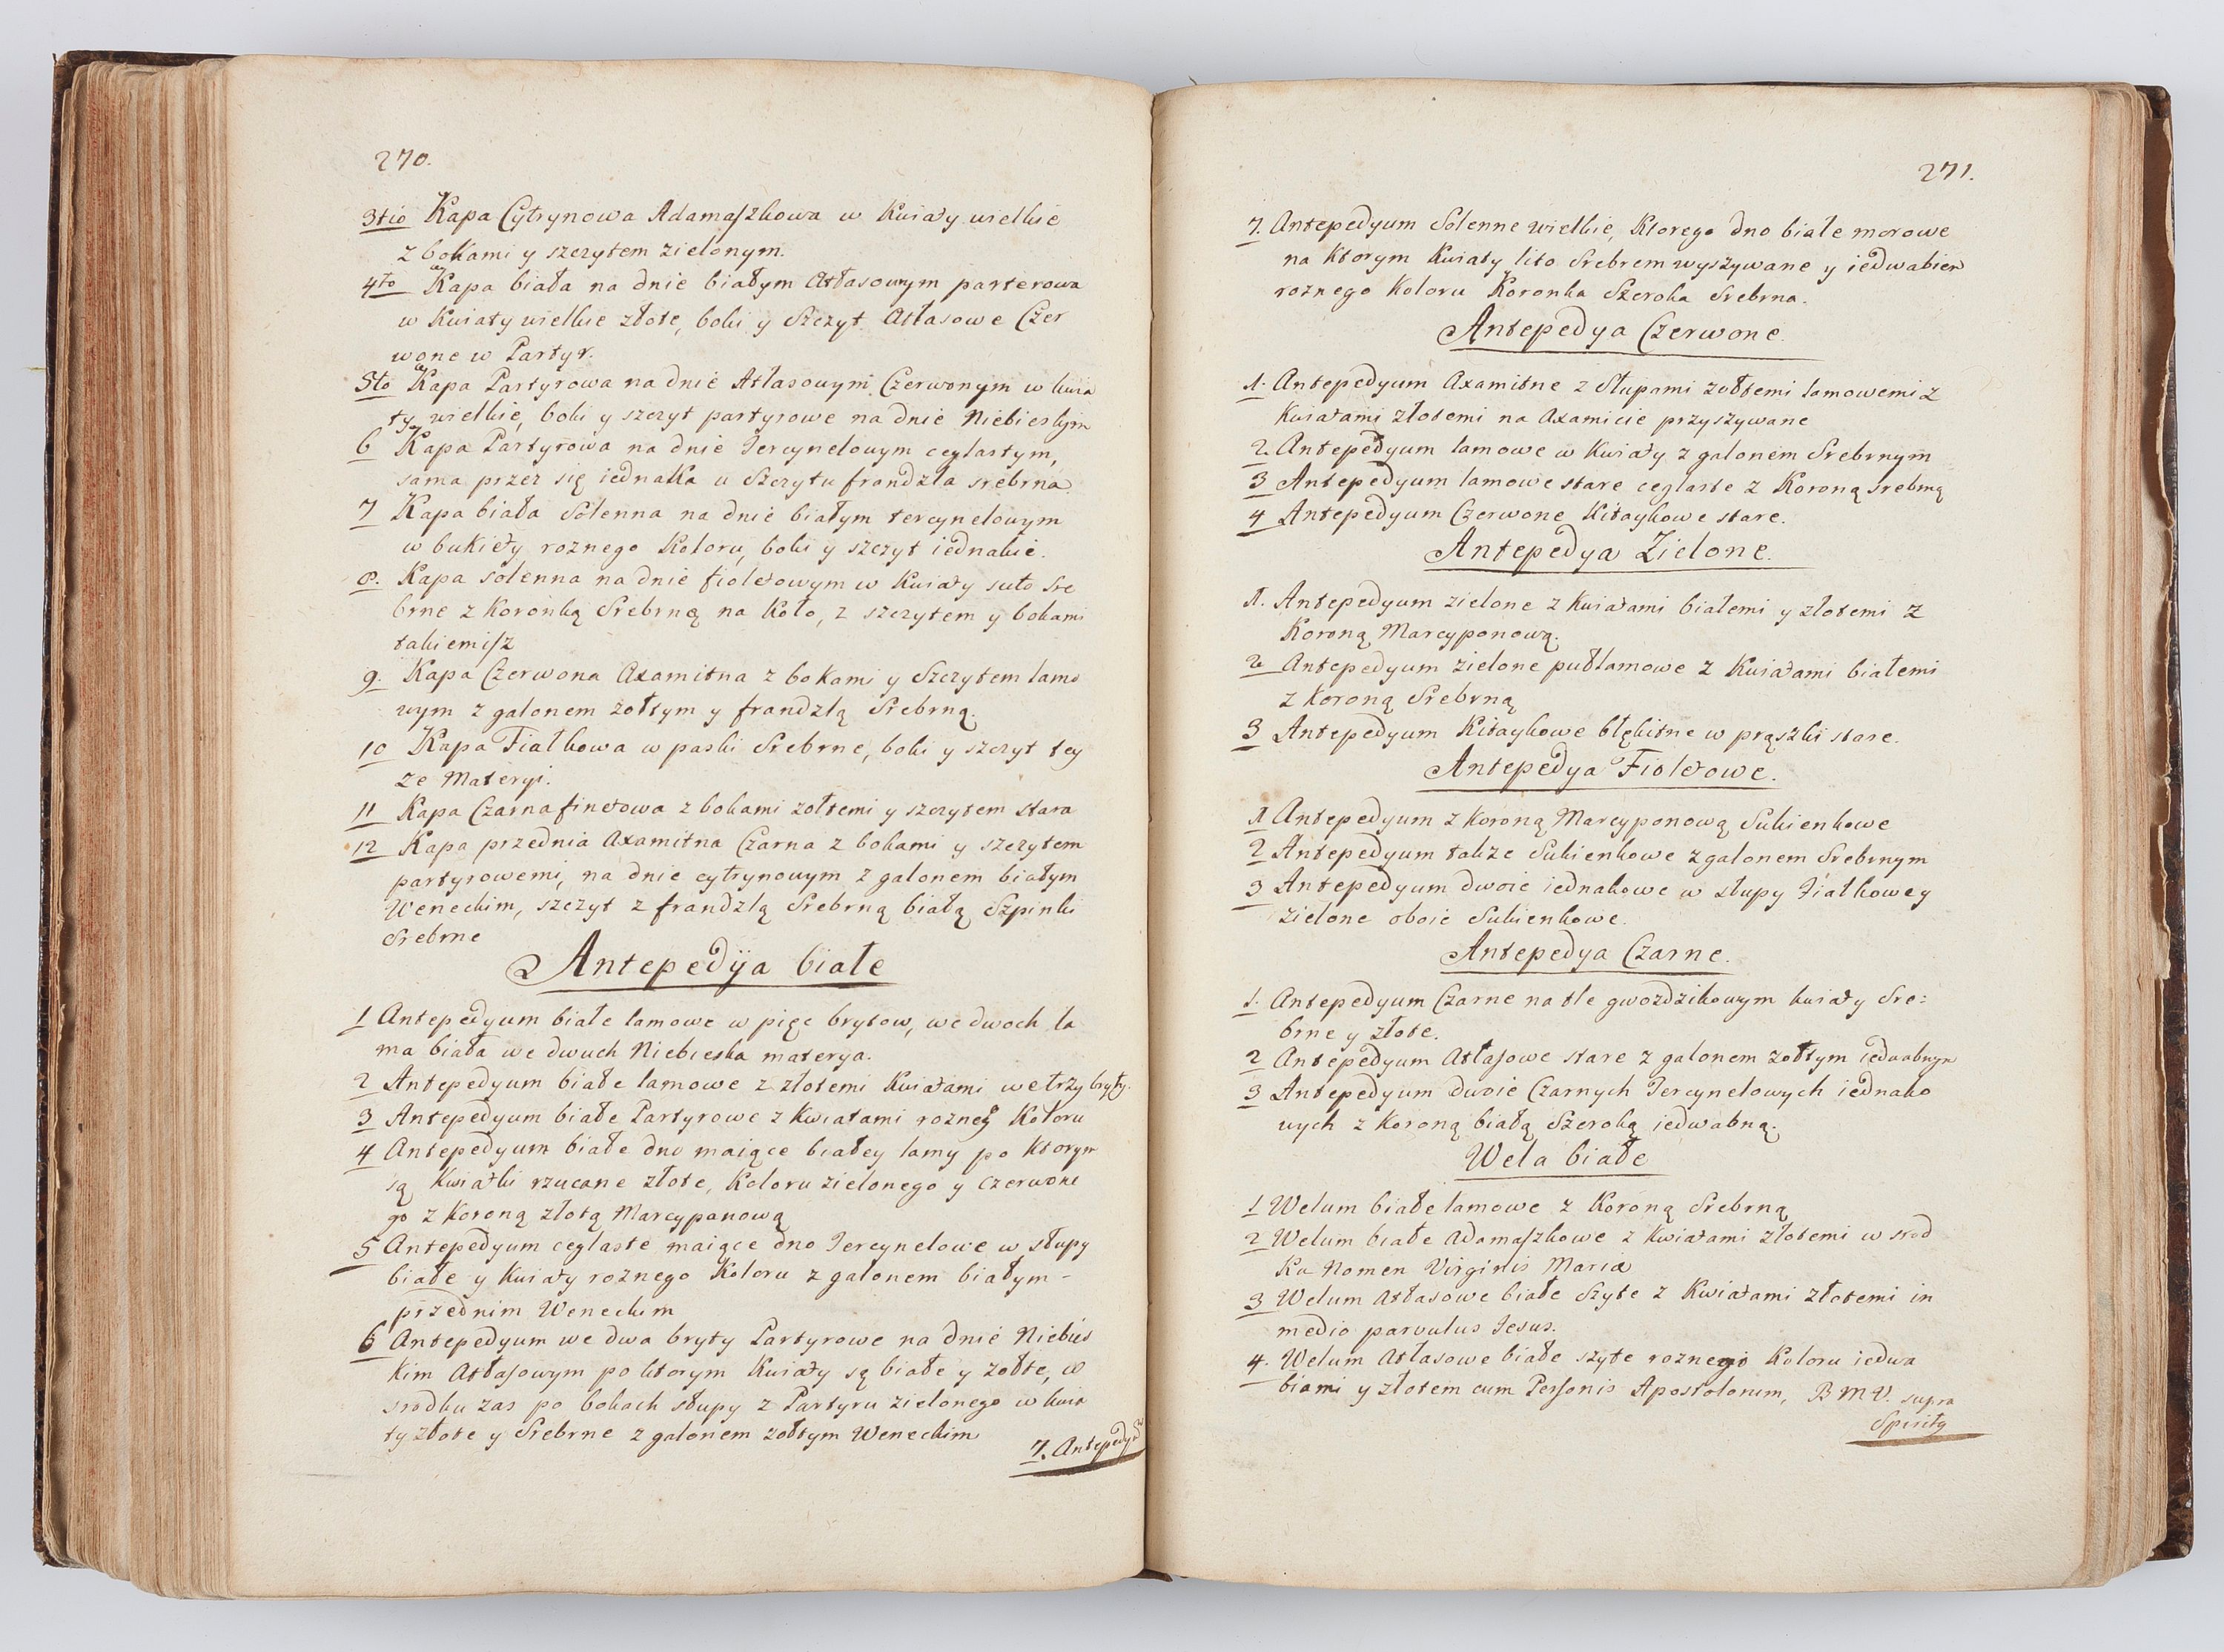 270.
3tio Kapa Cytrynowa Adamaszkowa w Kwiaty wielkie
z bokami y szczytem zielonym.
4to Kapa biała na dnie białym Atłasowym parterowa
w Kwiaty wielkie złote, boki y Szczyt Atłasowe Czer
wone w Partyr.
5to Kapa Partyrowa na dnie Atłasowym Czerwonym w kwia
ty wielkie, boki y szczyt partyrowe na dnie Niebieskim
6 Kapa Partyrowa na dnie Tercynelowym ceglastym,
sama przez się iednaka u Szczytu frandzla srebrna
7 Kapa biała Solenna na dnie białym tercynelowym
w bukiety roznego Koloru, boki y szczyt iednakie.
8. Kapa solenna na dnie fioletowym w Kwiaty suto Sre
brne z Koronką Srebrną na Koło, z szczytem y bokami
takiemisz
9. Kapa Czerwona Axamitna z bokami y Szczytem lamo
wym z galonem zołtym y frandzlą Srebrną.
10 Kapa Fiałkowa w paski Srebrne, boki y szczyt tey
ze Materyi.
11 Kapa Czarna finetowa z bokami zołtemi y szczytem stara
12 Kapa przednia Axamitna Czarna z bokami y szczytem
partyrowemi, na dnie cytrynowym z galonem białym
Weneckim, szczyt z frandzlą Srebrną białą Szpinki
Srebrne
Antepedija białe
1 Antepedyum białe lamowe w pięc brytow, we dwoch la
ma biała we dwuch Niebieska materya.
2 Antepedyum białe lamowe z złotemi Kwiatami we trzy bryty.
3 Antepedyum białe Partyrowe z Kwiatami rozneg Koloru
4 Antepedyum białe dno maiące białey lamy po Ktorym
są Kwiatki rzucane złote, Koloru zielonego y czerwone
go z Koroną złotą Marcypanową
5 Antepedyum ceglaste maiące dno Tercynelowe w słupy
białe y Kwiaty roznego Koloru z galonem białym -
przednim Weneckim
6 Antepedyum we dwa bryty Partyrowe na dnie Niebies
kim Atłasowym po ktorym Kwiaty są białe y zołte, w
srodku zas po bokach słupy z Partyru zielonego w kwia
ty złote y Srebrne z galonem zołtym Weneckim
7. Antepedyum
271.
7. Antepedyum Solenne wielkie, Ktorego dno białe morowe
na Ktorym Kwiaty lito Srebrem wyszywane y iedwabiem
roznego Koloru Koronka Szeroka Srebrna.
Antepedya Czerwone.
1. Antepedyum Axamitne z Słupami zołtemi lamowemi z
Kwiatami złotemi na Axamicie przyszywane
2. Antepedyum lamowe w Kwiaty z galonem Srebrnym
3 Antepedyum lamowe stare ceglaste z Koroną srebrną
4 Antepedyum Czerwone Kitaykowe stare.
Antepedya Zielone.
1. Antepedyum zielone z Kwiatami białemi y złotemi z
Koroną Marcyponową.
2 Antepedyum zielone pułlamowe z Kwiatami białemi
z Koroną Srebrną
3 Antepedyum Kitaykowe błękitne w prąszki stare.
Antepedya Fioletowe.
1 Antepedyum z Koroną Marcyponową Sukienkowe
2 Antepedyum takze Sukienkowe z galonem Srebrnym
3 Antepedyum dwoie iednakowe w słupy Fiałkowe y
zielone oboie Sukienkowe.
Antepedya Czarne.
1. Antepedyum Czarne na tle gwozdzikowym kwiaty Sre:
brne y złote.
2 Antepedyum Atłasowe stare z galonem zołtym iedwabnym
3 Antepedyum dwoie Czarnych Tercynelowych iednako
wych z Koroną białą Szeroką iedwabną.
Wela białe
1 Welum białe lamowe z Koroną Srebrną
2 Welum białe Adamaszkowe z Kwiatami złotemi w srod
Ku Nomen Virginis Maria
3 Welum Atłasowe białe Szyte z Kwiatami złotemi in
medio parvulus Jesus.
4. Welum Atłasowe białe szyte roznego Koloru iedwa
biami y złotem cum Personis Apostolorum, B M V. supra
Spiritg